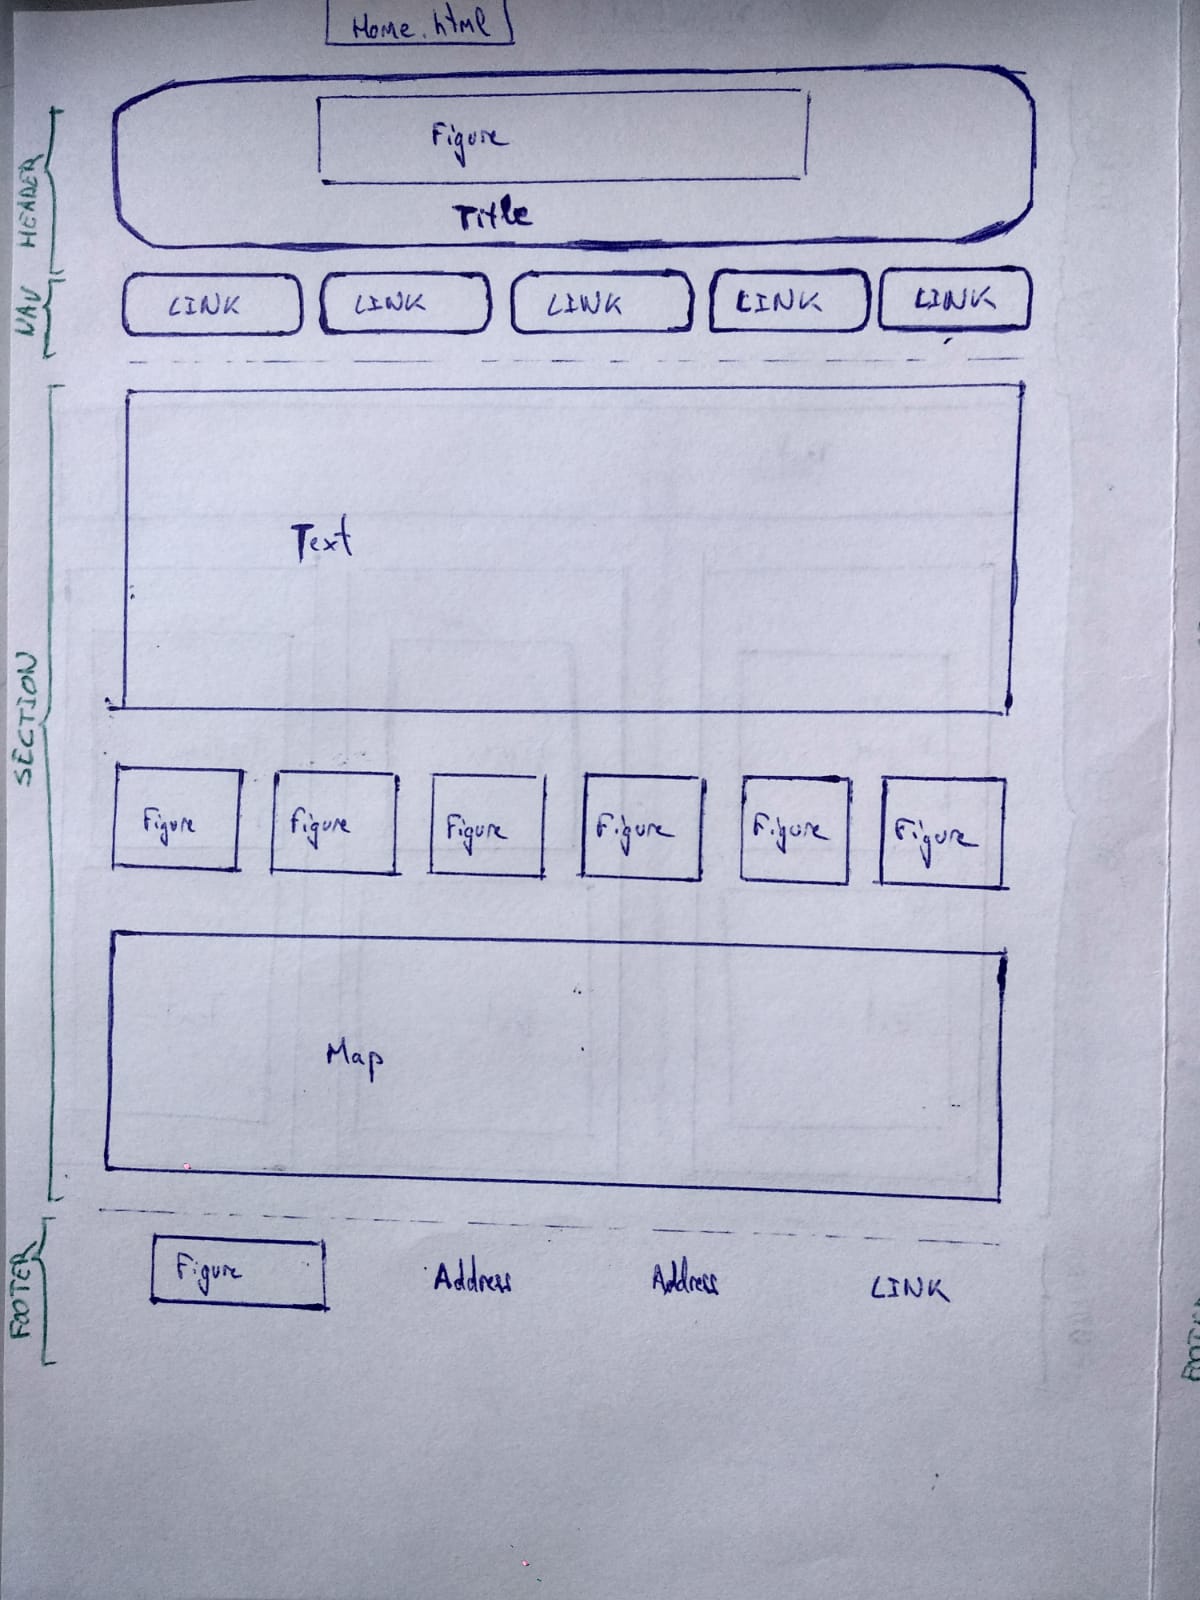 Home.html
HEADER
Figure
Title
NAV
LINK LINK LINK LINK LINK
SECTION
Text
Figure Figure Figure Figure Figure Figure
Map
FOOTER
Figure Address Address LINK